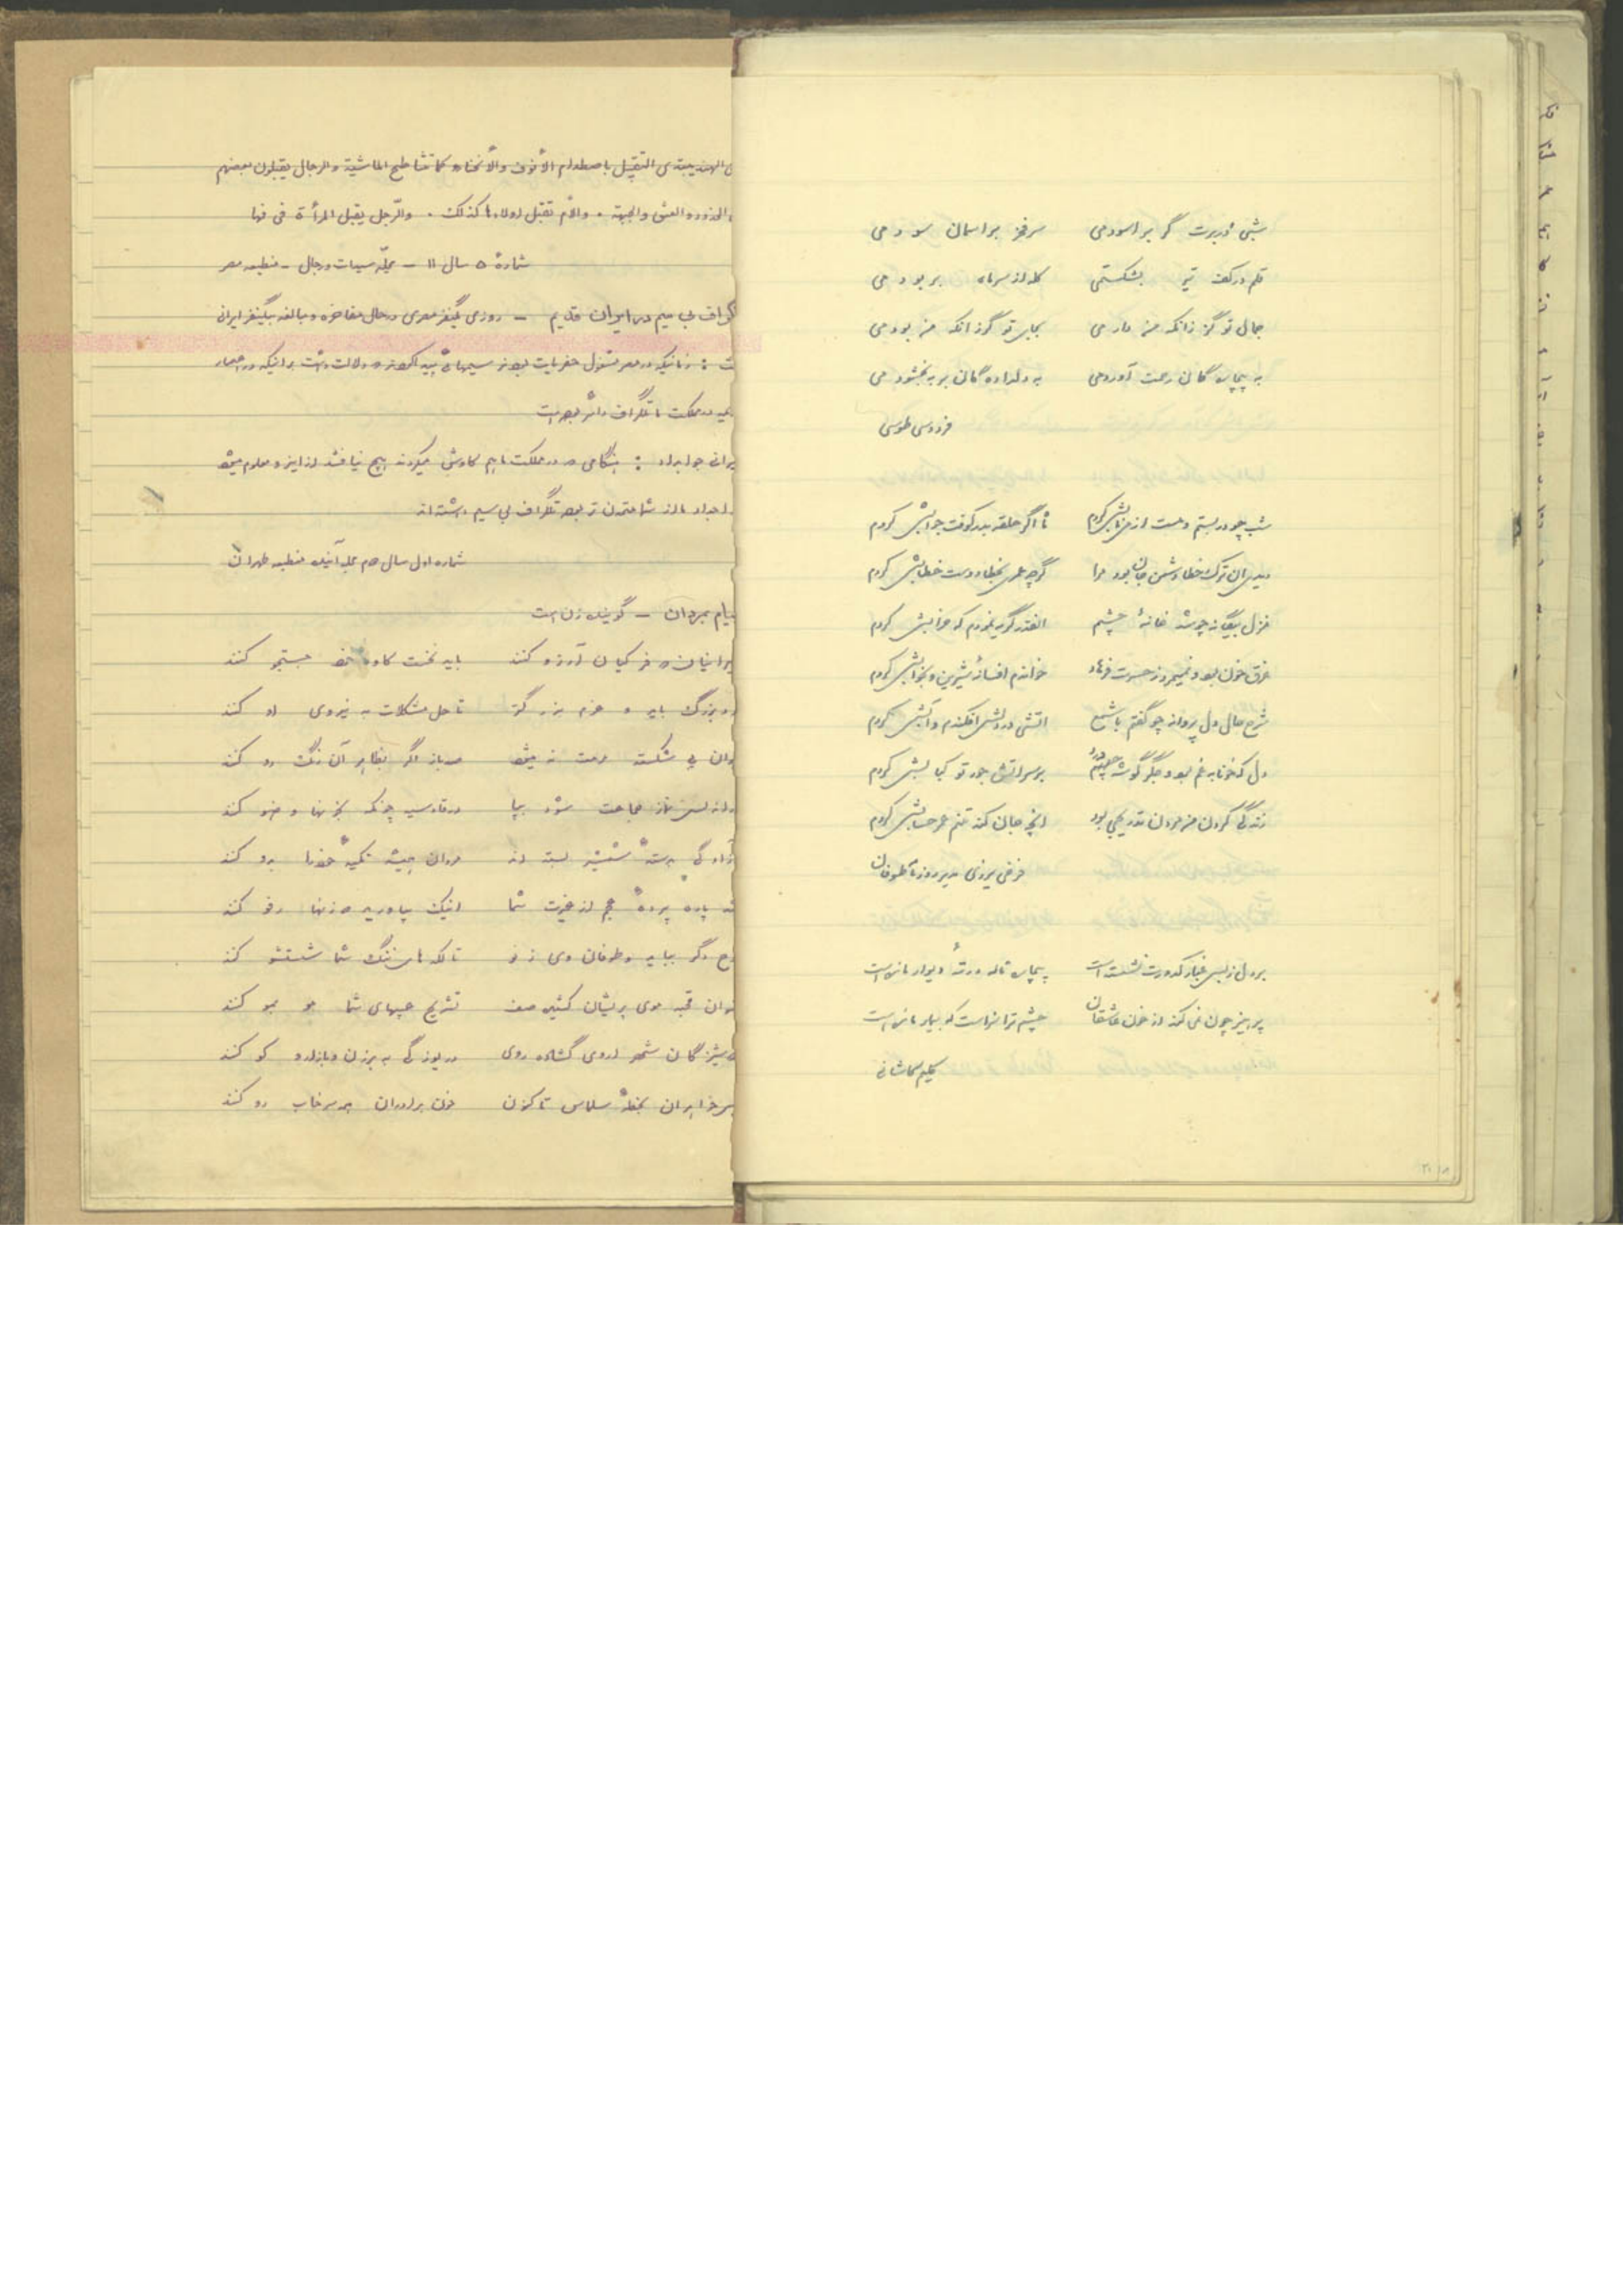 شبی دربرت گر براسودمی سرفخر براسمان سودمی
قلم درکف تیر بشکستمی کله از سرماه بربودمی
جمال تو گر زانکه من دارمی بجای تو گر زانکه من بودمی
به بیچاره گان رحمت آوردمی به دلداده گان بر ببخشودمی
فردوسی طوسی
شب چو در بستم و مست از می نابش کردم ماه اگر حلقه بدر کوفت جوابش کردم
دیدی ان ترک خطا دشمن جان بود مرا گرچه عمری بخطا دوست خطابش کردم
منزل بیگانه چو شد خانهٔ چشم انقدر گریه نمودم که خرابش کردم
غرق خون بود و نمیمرد ز حسرت فرهاد خواندم افسانهٔ شیرین و بخوابش کردم
شرح حال دل پروانه چو گفتم با شمع اتشی در دلش افکندم و آبش کردم
دل که خونابه غم بود و جگر گوشه بر سر اتش جور تو کبابش کردم
زندگی کردن من مردن تدریجی بود انچه جان کند تنم عمر حسابش کردم
فرخی یزدی مدیر روزنامهٔ طوفان
بر دل ز بس غبار کدورت نشسته است بیچاره ناله در ته دیوار مانده است
پرهیز چون نمی کند از خون عاشقان چشم ترا که بیمار مانده است
کلیم کاشانی
الهند یبتدی التقبیل باصطدام الأنوف والأنخاه کما تتناطح الماشیة والرجال یقبلون بعضهم
والجبهة . والأم تقبل اولادها کذلک . والرجل یقبل المرأة فی فمها
شمارهٔ ۵ سال ۱۱ – مجلّه سیدات ورجال – منطبعه مصر
گراف بی سیم در ایران قدیم – روزی یکنفر مصری در حال مفاخره و مبالغه بیکنفر ایرانی
زمانیکه در مصر مشغول حفریات بودند سیمهائی پیدا کردند که دلالت داشت براینکه در اعصار
مملکت ما تلگراف دائر بوده است
جواب داد : هنگامی که در مملکت ما هم کاوش میکردند هیچ نیافتند از اینرو معلوم میشود
اجداد ما از شما متمدن تر بوده تلگراف بی سیم داشته اند
شماره اول سال دوم مجله آینده منطبعه طهران
پیام بمردان – گوینده زن است
ایرانیان که فر کیان آرزو کنند باید نخست کاوه خود جستجو کنند
بزرگ باید و عزم بزرگتر تا حل مشکلات به نیروی او کنند
شکسته مرمت نمیشود صد بار اگر بظاهر آن رنگ رو کنند
نماز جماعت شود بپا در قادسیه چونکه بخونها وضو کنند
آزادگی بدستهٔ شمشیر بسته اند مردان همیشه تکیهٔ خود را بدو کنند
شد پاره پردهٔ عجم از غیرت شما اینک بیاورید که زنها رفو کنند
نوح دگر بباید و طوفان وی ز نو تا لکه های ننگ شما شستشو کنند
موی پریشان کشیده صف تشریح عیبهای شما مو بمو کنند
دوشیزگان شهر ارومی گشاده روی دریوزگی به برزن و بازار و کو کنند
خواهران بخطهٔ سلماس تاکنون خون برادران همه سرخاب رو کنند